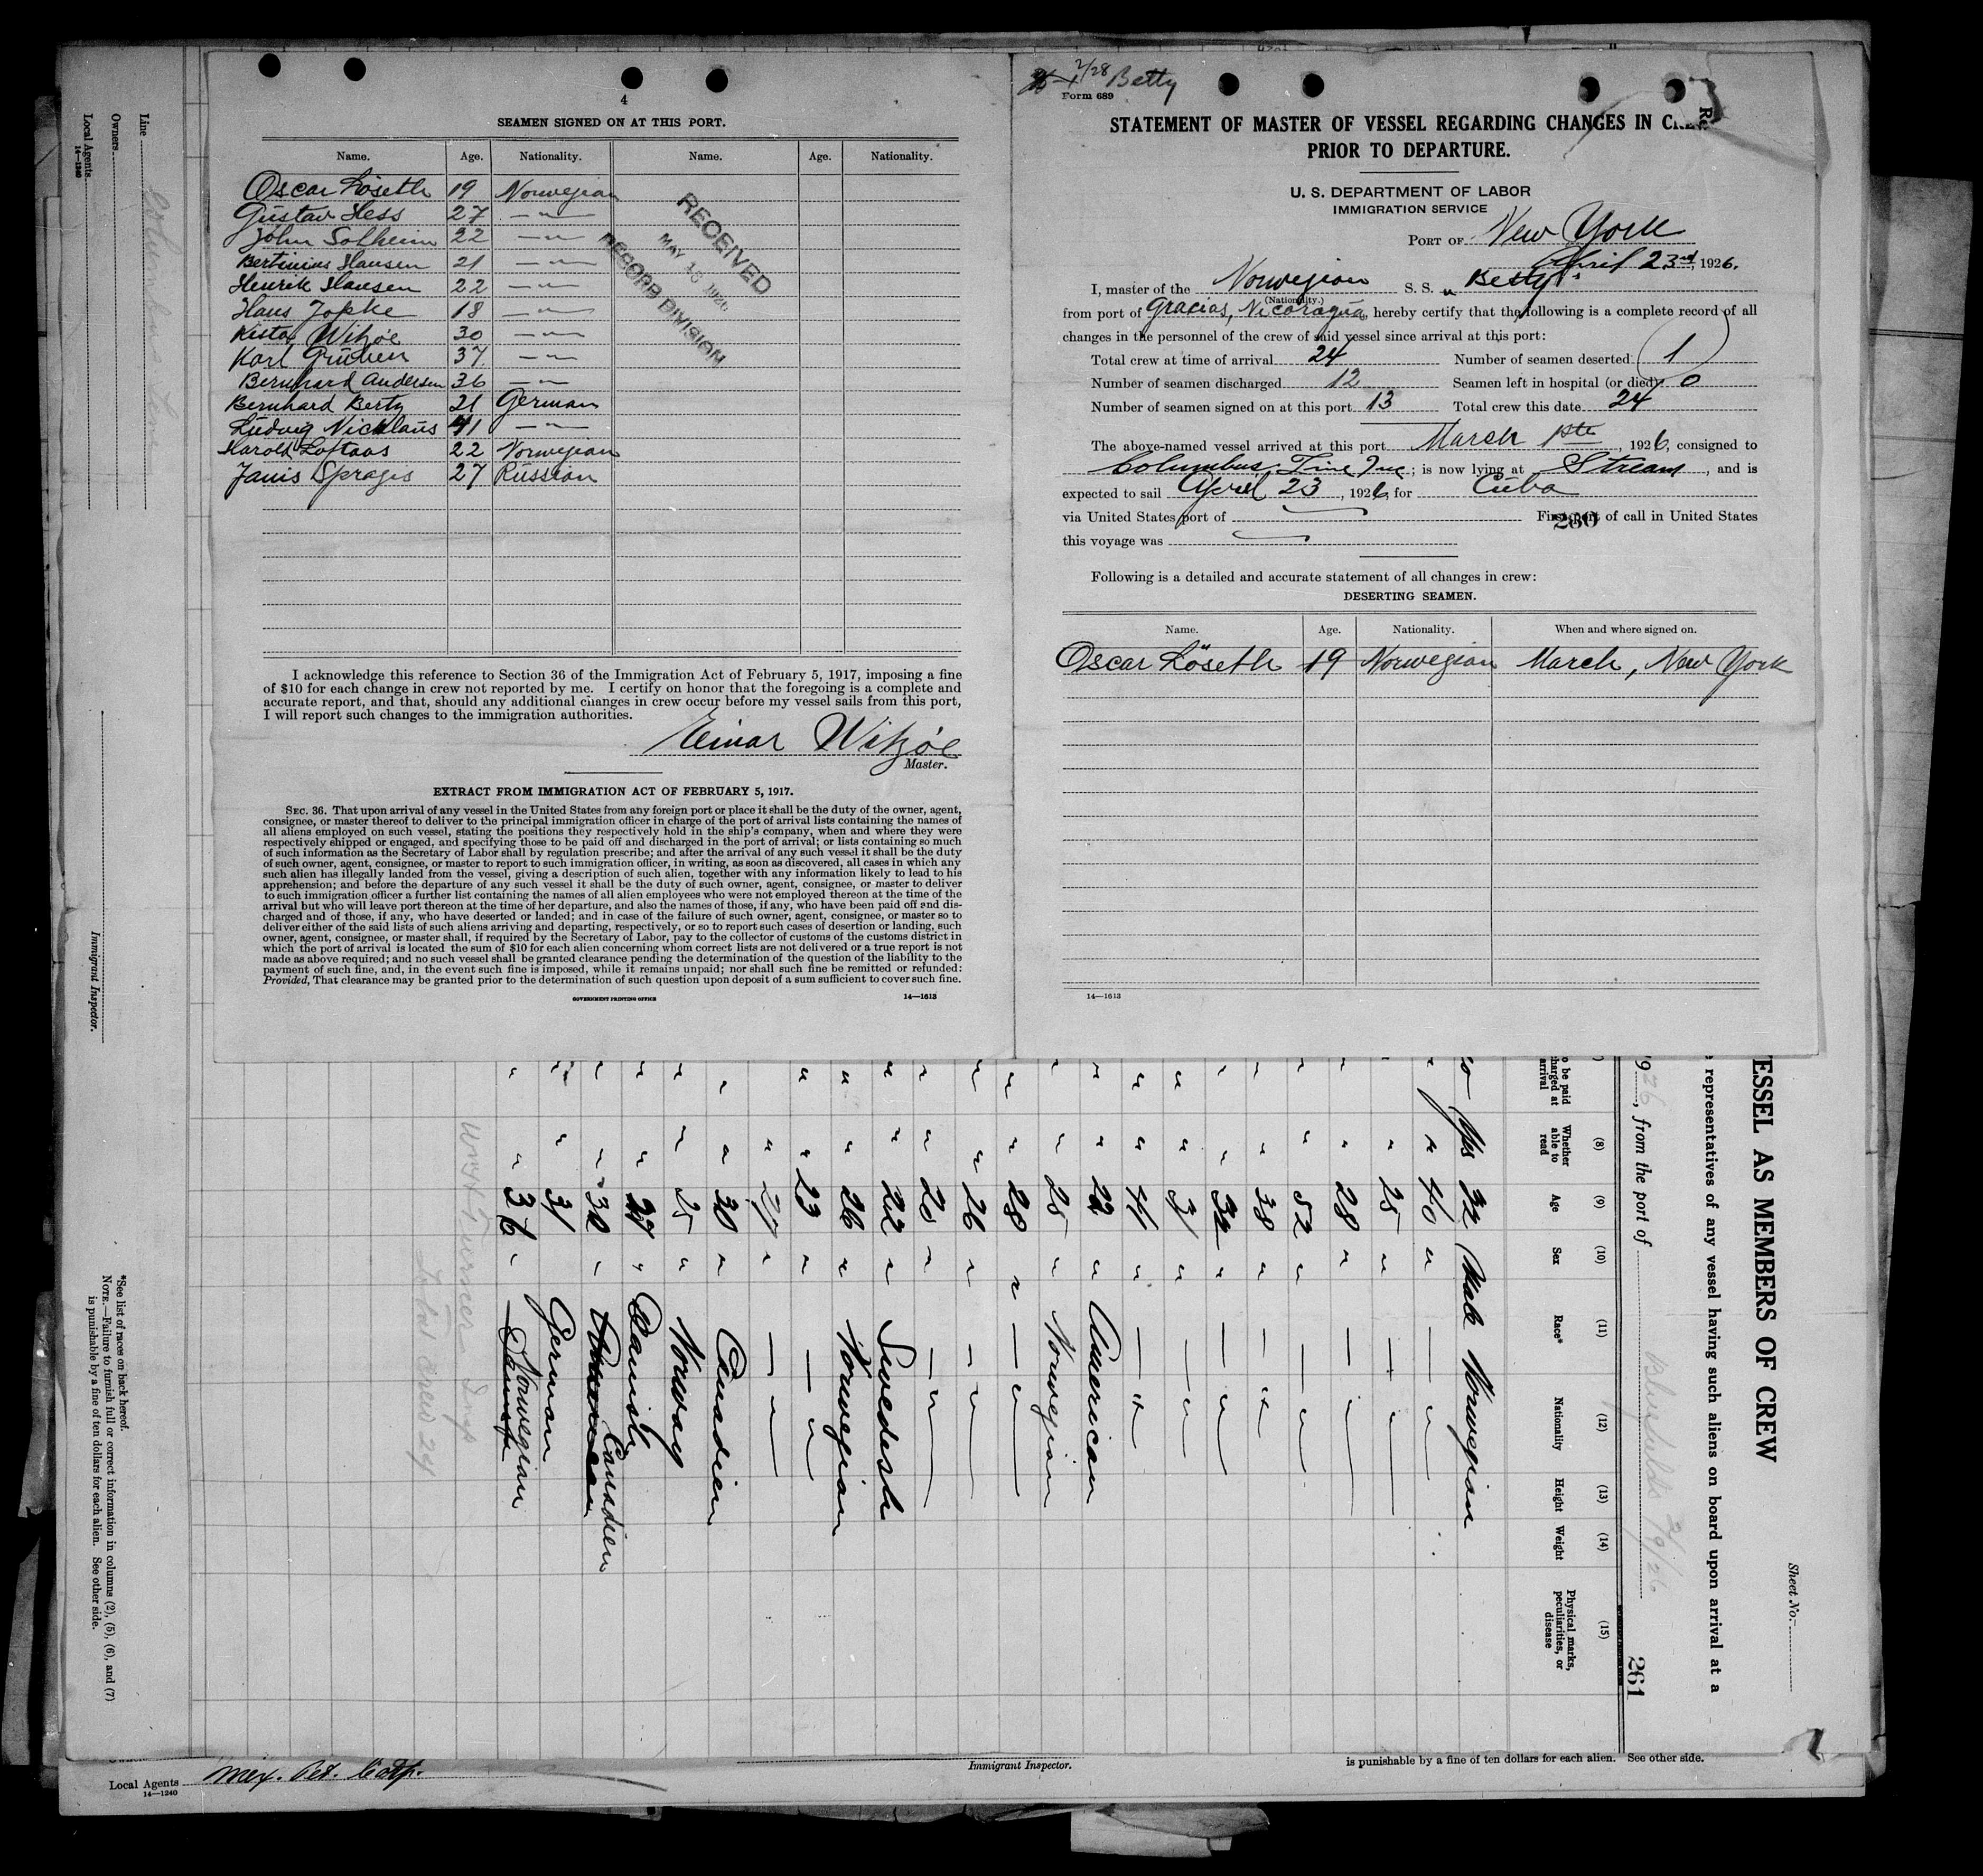 4
SEAMEN SIGNED ON AT THIS PORT.
Name. Age. Nationality. Name. Age. Nationality.
Oscar Löseth 19 Norwegian
Gustav Hess 27 —〃—
John Solheim 22 —〃—
Bertinius Hansen 21 —〃—
Henrik Hansen 22 —〃—
Hans Jopke 18 —〃—
Witzöe 30 —〃—
Karl 37 —〃—
Bernhard Andersen 36 —〃—
Bernhard Berty 21 German
Ludvig Nicklaüs 41 —〃—
Harold Loftaas 22 Norwegian
Janis Spragis 27 Russian
RECEIVED
MAY 15 1926
RECORD DIVISION
I acknowledge this reference to Section 36 of the Immigration Act of February 5, 1917, imposing a fine
of $10 for each change in crew not reported by me. I certify on honor that the foregoing is a complete and
accurate report, and that, should any additional changes in crew occur before my vessel sails from this port,
I will report such changes to the immigration authorities.
Einar Witzöe
Master.
EXTRACT FROM IMMIGRATION ACT OF FEBRUARY 5, 1917.
SEC. 36. That upon arrival of any vessel in the United States from any foreign port or place it shall be the duty of the owner, agent,
consignee, or master thereof to deliver to the principal immigration officer in charge of the port of arrival lists containing the names of
all aliens employed on such vessel, stating the positions they respectively hold in the ship's company, when and where they were
respectively shipped or engaged, and specifying those to be paid off and discharged in the port of arrival; or lists containing so much
of such information as the Secretary of Labor shall by regulation prescribe; and after the arrival of any such vessel it shall be the duty
of such owner, agent, consignee, or master to report to such immigration officer, in writing, as soon as discovered, all cases in which any
such alien has illegally landed from the vessel, giving a description of such alien, together with any information likely to lead to his
apprehension; and before the departure of any such vessel it shall be the duty of such owner, agent, consignee, or master to deliver
to such immigration officer a further list containing the names of all alien employees who were not employed thereon at the time of the
arrival but who will leave port thereon at the time of her departure, and also the names of those, if any, who have been paid off and dis-
charged and of those, if any, who have deserted or landed; and in case of the failure of such owner, agent, consignee, or master so to
deliver either of the said lists of such aliens arriving and departing, respectively, or so to report such cases of desertion or landing, such
owner, agent, consignee, or master shall, if required by the Secretary of Labor, pay to the collector of customs of the customs district in
which the port of arrival is located the sum of $10 for each alien concerning whom correct lists are not delivered or a true report is not
made as above required; and no such vessel shall be granted clearance pending the determination of the question of the liability to the
payment of such fine, and, in the event such fine is imposed, while it remains unpaid; nor shall such fine be remitted or refunded:
Provided, That clearance may be granted prior to the determination of such question upon deposit of a sum sufficient to cover such fine.
GOVERNMENT PRINTING OFFICE 14—1613
2/28 Betty
Form 689
STATEMENT OF MASTER OF VESSEL REGARDING CHANGES IN CREW
PRIOR TO DEPARTURE.
U. S. DEPARTMENT OF LABOR
IMMIGRATION SERVICE
PORT OF New York
April 23rd, 1926.
I, master of the Norwegian S. S. "Betty"
(Nationality.)
from port of Gracias, Nicoragua, hereby certify that the following is a complete record of all
changes in the personnel of the crew of said vessel since arrival at this port:
Total crew at time of arrival 24 Number of seamen deserted 1
Number of seamen discharged 12 Seamen left in hospital (or died) 0
Number of seamen signed on at this port 13 Total crew this date 24
The above-named vessel arrived at this port March 1ste, 1926, consigned to
Columbus Line Inc; is now lying at Stream, and is
expected to sail April 23, 1926, for Cuba
via United States port of First port of call in United States
260
this voyage was
Following is a detailed and accurate statement of all changes in crew:
DESERTING SEAMEN.
Name. Age. Nationality. When and where signed on.
Oscar Löseth 19 Norwegian March, New York
14—1613
ESSEL AS MEMBERS OF CREW
Sheet No.
representatives of any vessel having such aliens on board upon arrival at a
1926, from the port of
261
o be paid
charged at
arrival
(8) Whether able to read
(9) Age
(10) Sex
(11) Race*
(12) Nationality
(13) Height
(14) Weight
(15) Physical marks, peculiarities, or disease
Yes 32 Male Norwegian
〃 40 〃 —〃—
〃 25 〃 —〃—
〃 28 〃 —〃—
〃 52 〃 —〃—
〃 38 〃 —〃—
〃 32 〃 —〃—
〃 31 〃 —〃—
〃 〃 —〃—
〃 22 〃 American
〃 25 〃 Norwegian
〃 28 〃 —〃—
〃 26 〃 —〃—
〃 20 〃 —〃—
〃 22 〃 Swedesh
〃 26 〃 Norwegian
〃 23 〃 —〃—
〃 〃 —〃—
〃 30 〃 Canadien
〃 25 〃 Norway
〃 27 〃 Danish
〃 32 〃 Canadien
〃 31 German
〃 36 〃 Norwegian
Total Crew 24
Line Columbus Line
Owners
Local Agents
14—1240
Immigrant Inspector.
*See list of races on back hereof.
NOTE.—Failure to furnish full or correct information in columns (2), (5), (6), and (7)
is punishable by a fine of ten dollars for each alien. See other side.
Local Agents Mex. Pet. Corp.
14—1240
Immigrant Inspector.
is punishable by a fine of ten dollars for each alien. See other side.